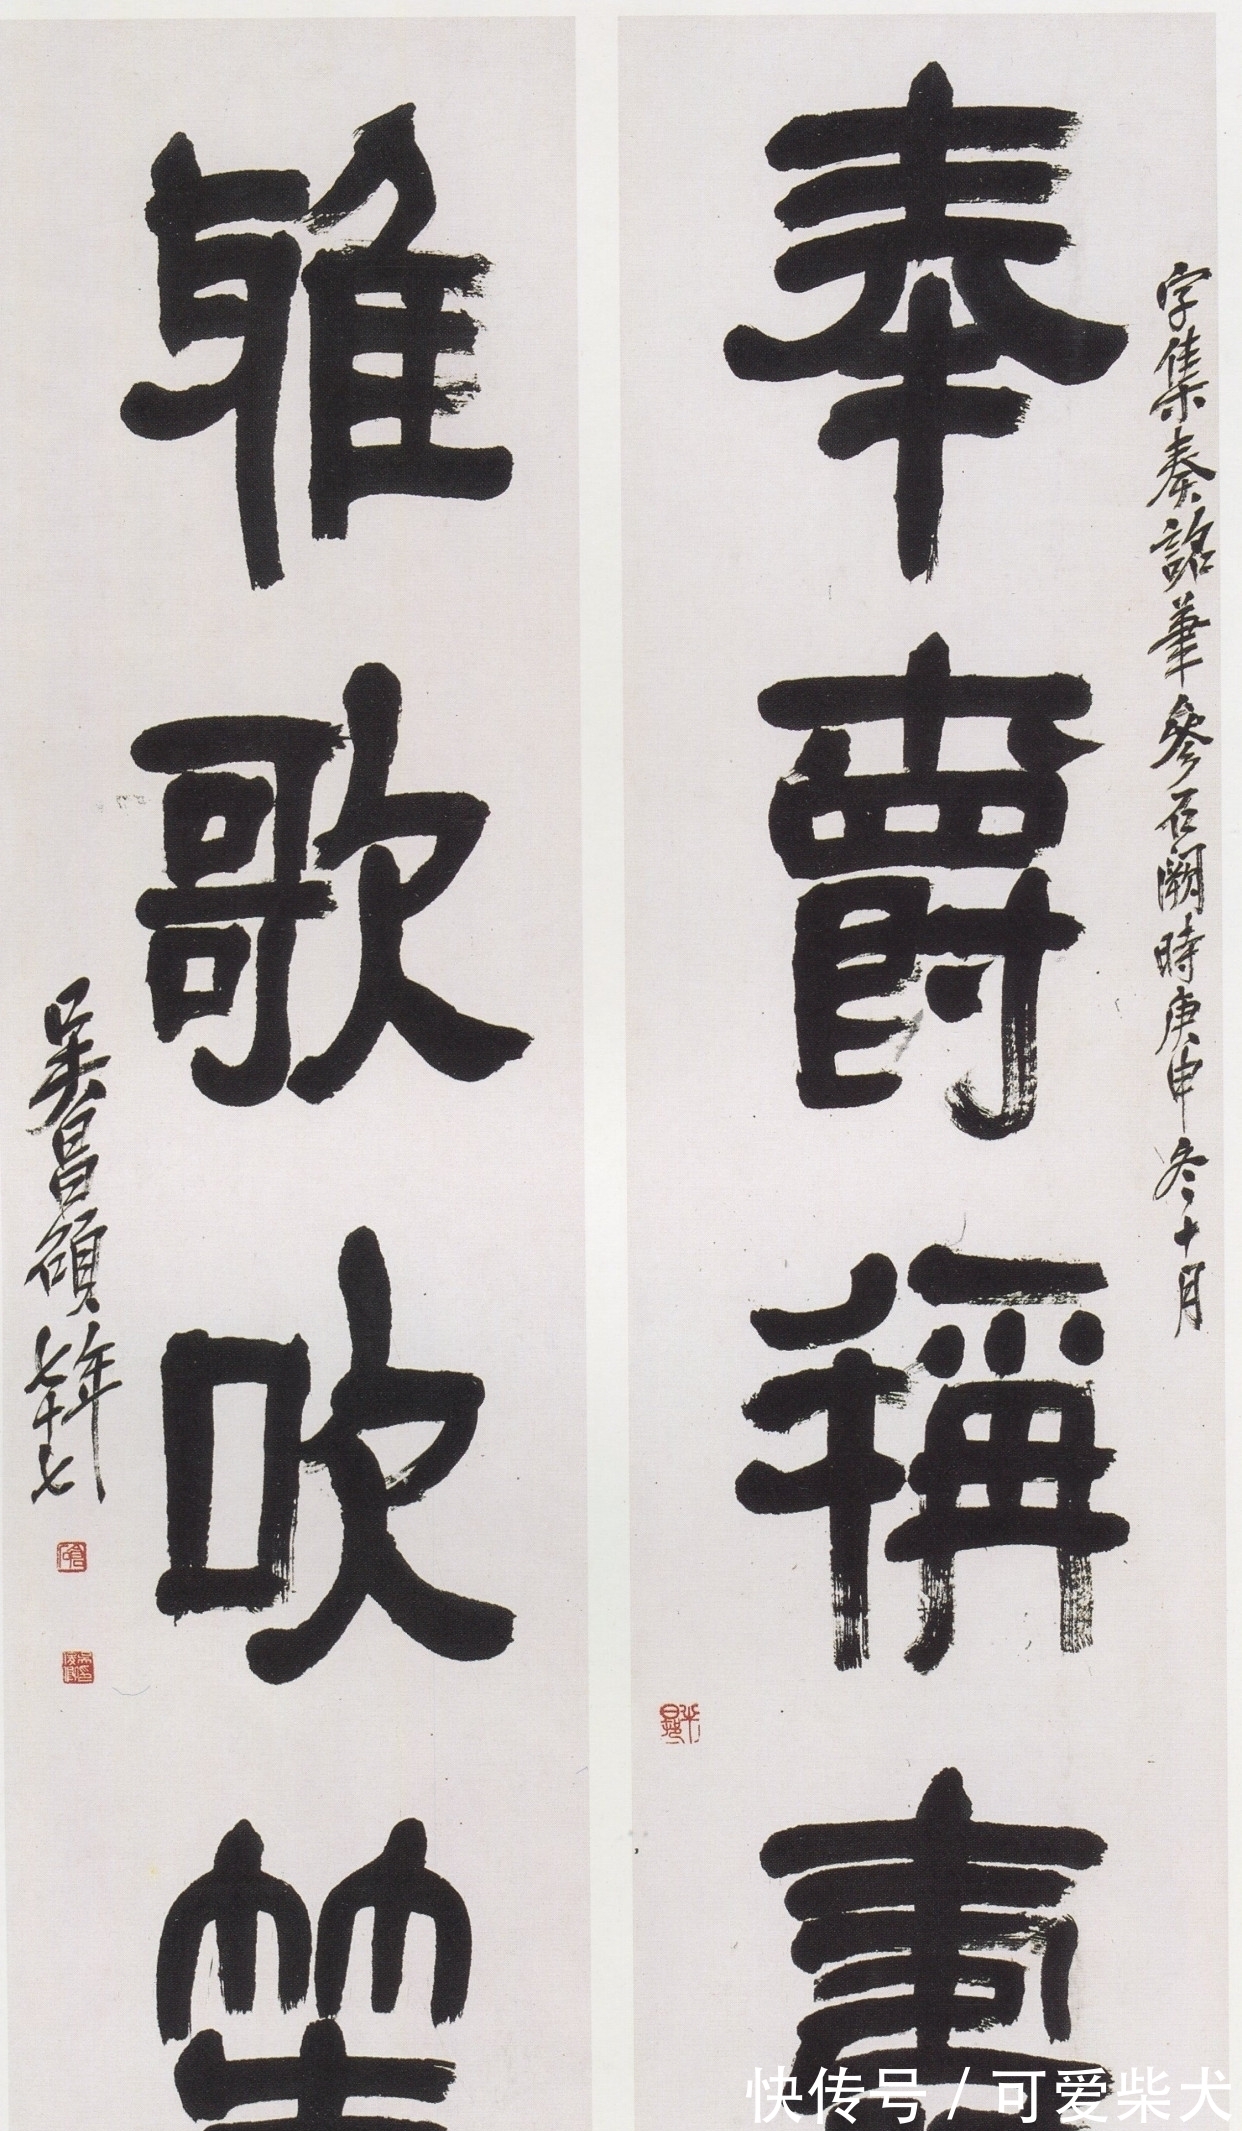 字集秦詔筆參石闕時庚申冬十月
奉爵稱壽
雅歌吹笙
吳昌碩年七十七
快传号/可爱柴犬